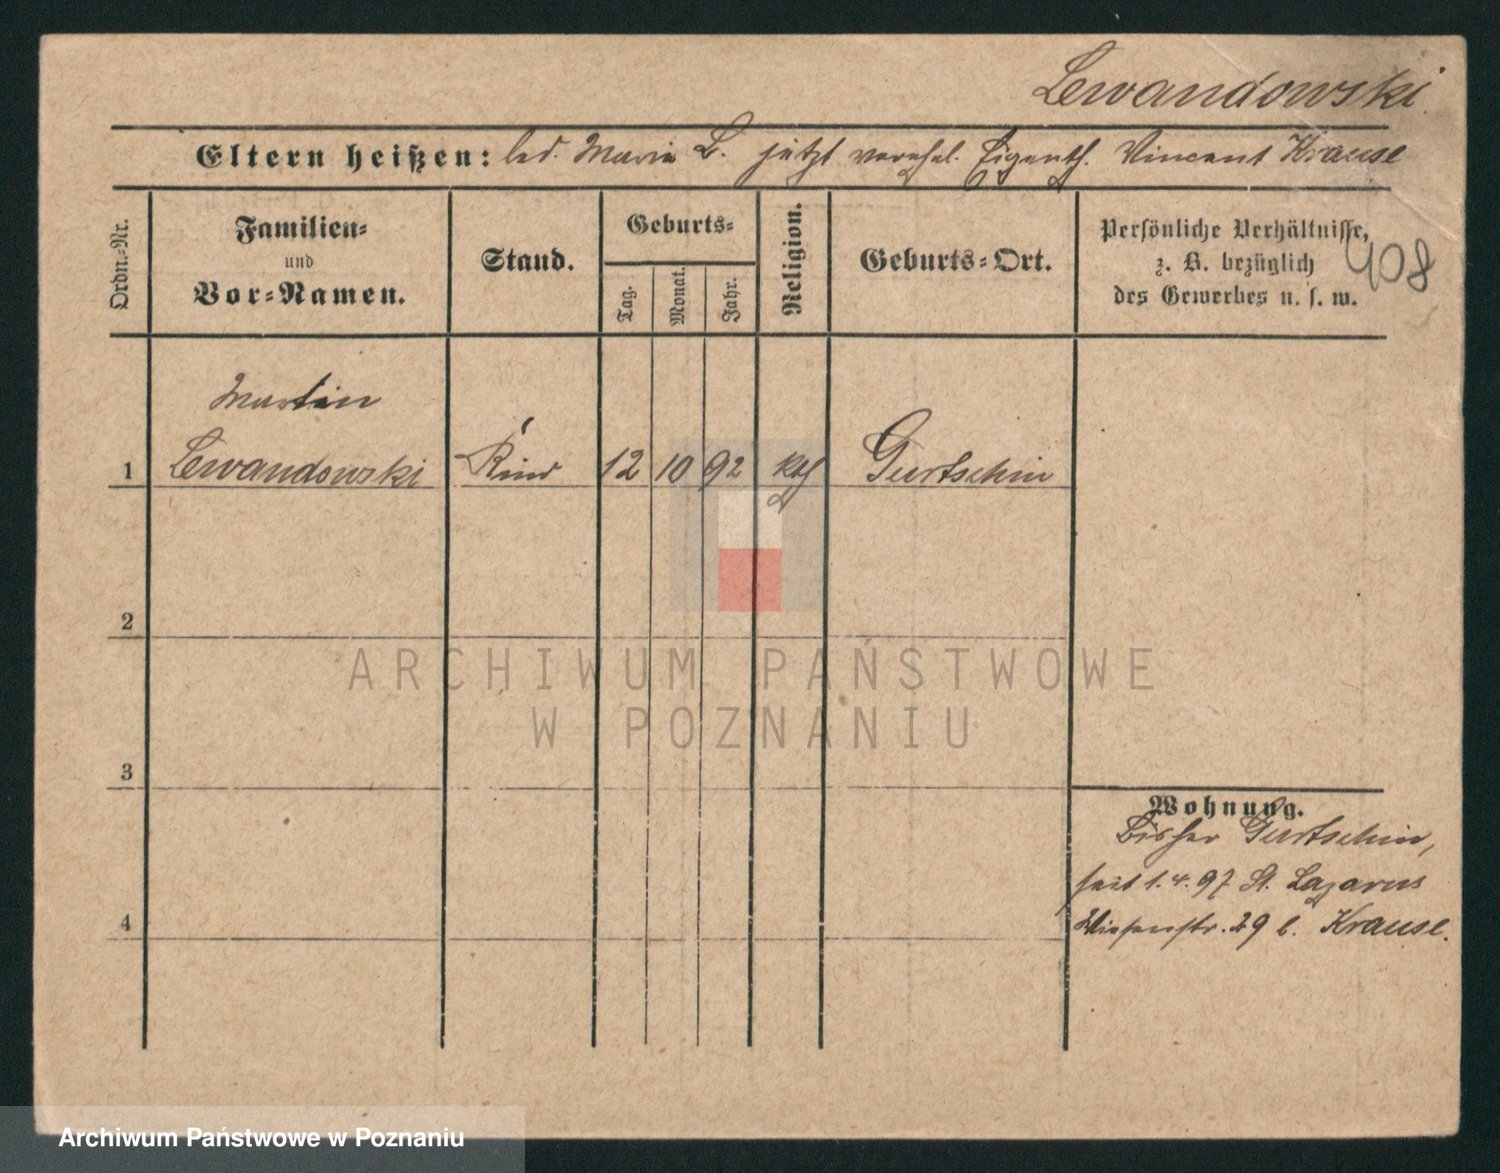 Lewandowski
Eltern heißen: led. Marie L. jetzt verehel. Eigenth. Vincent Krause
Ordn.-Nr.
Familien-
und
Vor-Namen.
Stand.
Geburts-
Tag.
Monat.
Jahr.
Religion.
Geburts-Ort.
Persönliche Verhältnisse,
z. B. bezüglich
des Gewerbes u. s. w.
408
Martin
1 Lewandowski Kind 12 10 92 kth Gurtschin
2
3
4
Wohnung.
Bisher Gurtschin,
seit 1.4.97 St. Lazarus
Wiesenstr. 29 b. Krause.
ARCHIWUM PAŃSTWOWE
W POZNANIU
Archiwum Państwowe w Poznaniu